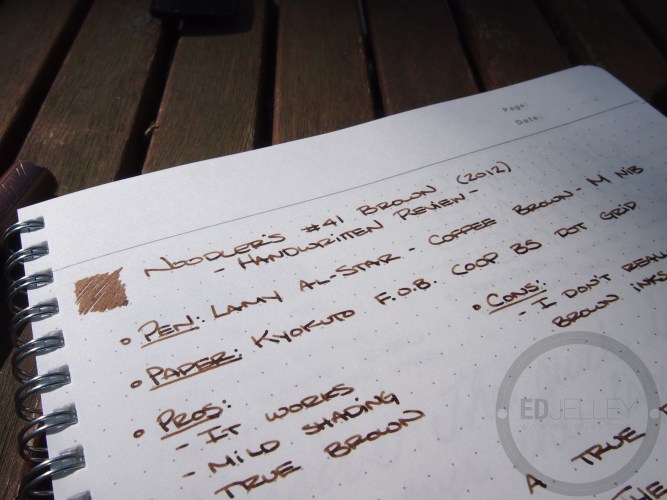 Page:
Date:
NOODLER'S #41 BROWN (2012)
- HANDWRITTEN REVIEW -
• PEN: LAMY AL-STAR - COFFEE BROWN - M NIB
• PAPER: KYOKUTO F.O.B. COOP B5 DOT GRID
• PROS:
- IT WORKS
- MILD SHADING
TRUE BROWN
• CONS:
- I DON'T
BROWN INKS
A TRUE
THE
ED JELLEY